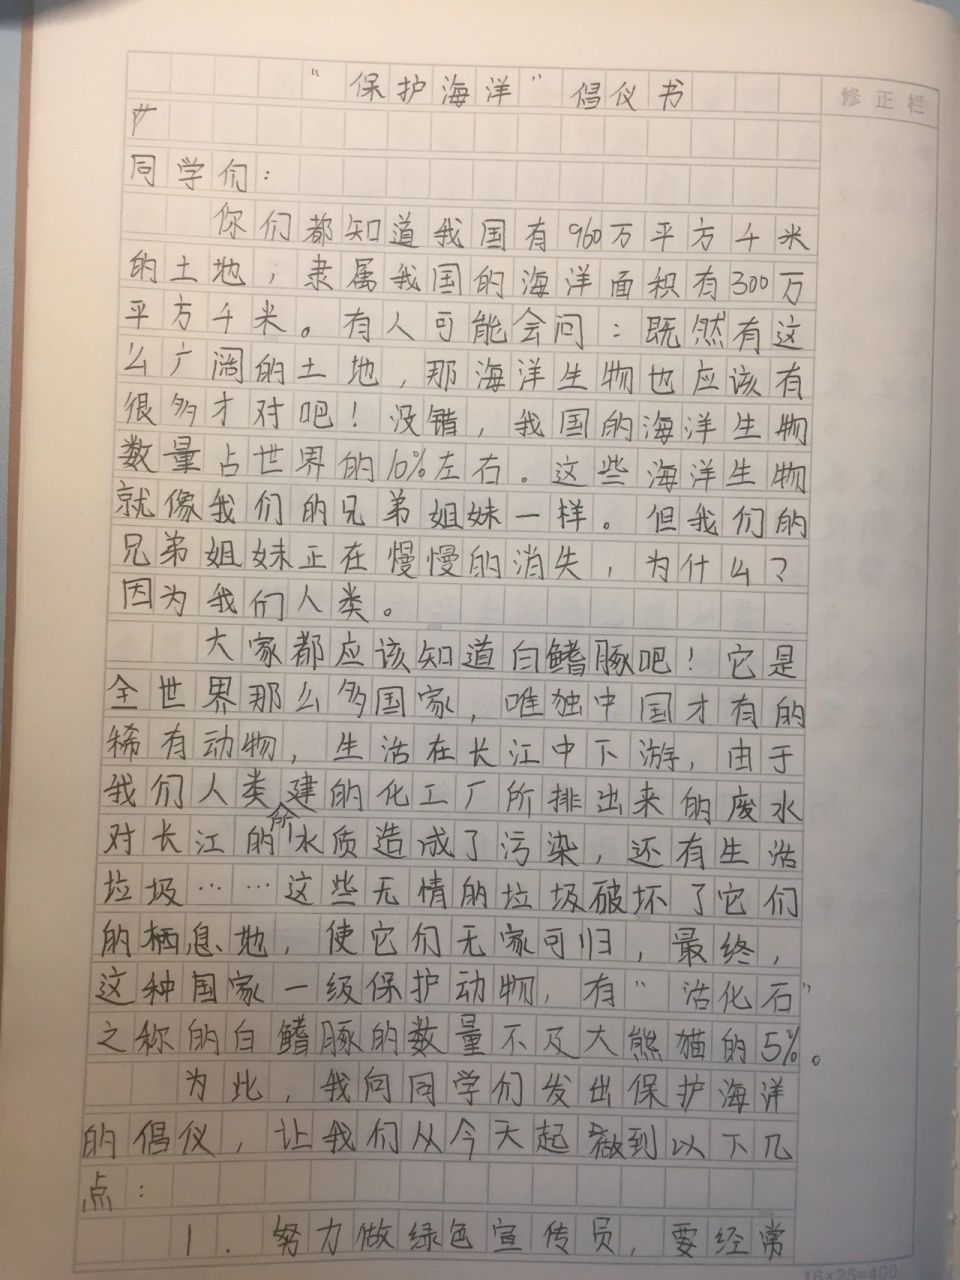 “保护海洋”倡仪书
修正栏
同学们：
你们都知道我国有960万平方千米
的土地，隶属我国的海洋面积有300万
平方千米。有人可能会问：既然有这
么广阔的土地，那海洋生物也应该有
很多才对吧！没错，我国的海洋生物
数量占世界的10%左右。这些海洋生物
就像我们的兄弟姐妹一样。但我们的
兄弟姐妹正在慢慢的消失，为什么？
因为我们人类。
大家都应该知道白鳍豚吧！它是
全世界那么多国家，唯独中国才有的
稀有动物，生活在长江中下游，由于
我们人类所建的化工厂所排出来的废水
对长江的水质造成了污染，还有生活
垃圾……这些无情的垃圾破坏了它们
的栖息地，使它们无家可归，最终，
这种国家一级保护动物，有“活化石”
之称的白鳍豚的数量不及大熊猫的5%。
为此，我向同学们发出保护海洋
的倡仪，让我们从今天起做到以下几
点：
1．努力做绿色宣传员，要经常
16×25=400